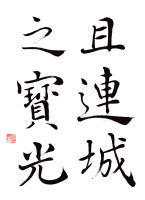 且連城
之寶光